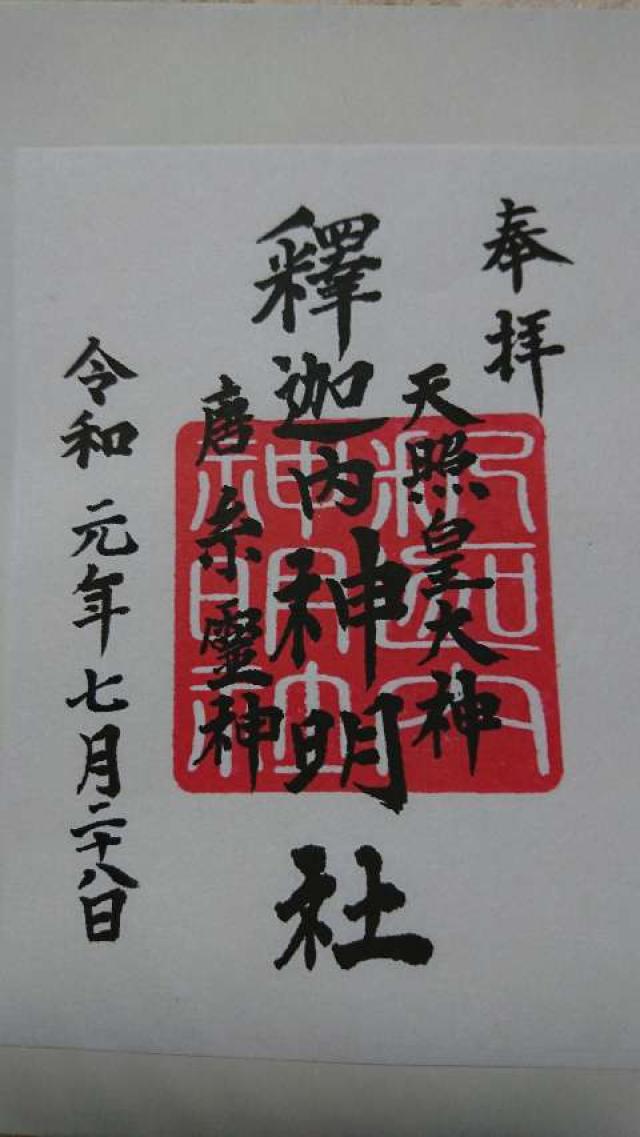 奉拝
天照皇大神
釋迦内神明社
唐糸靈神
令和元年七月二十八日
釈迦内
神明社